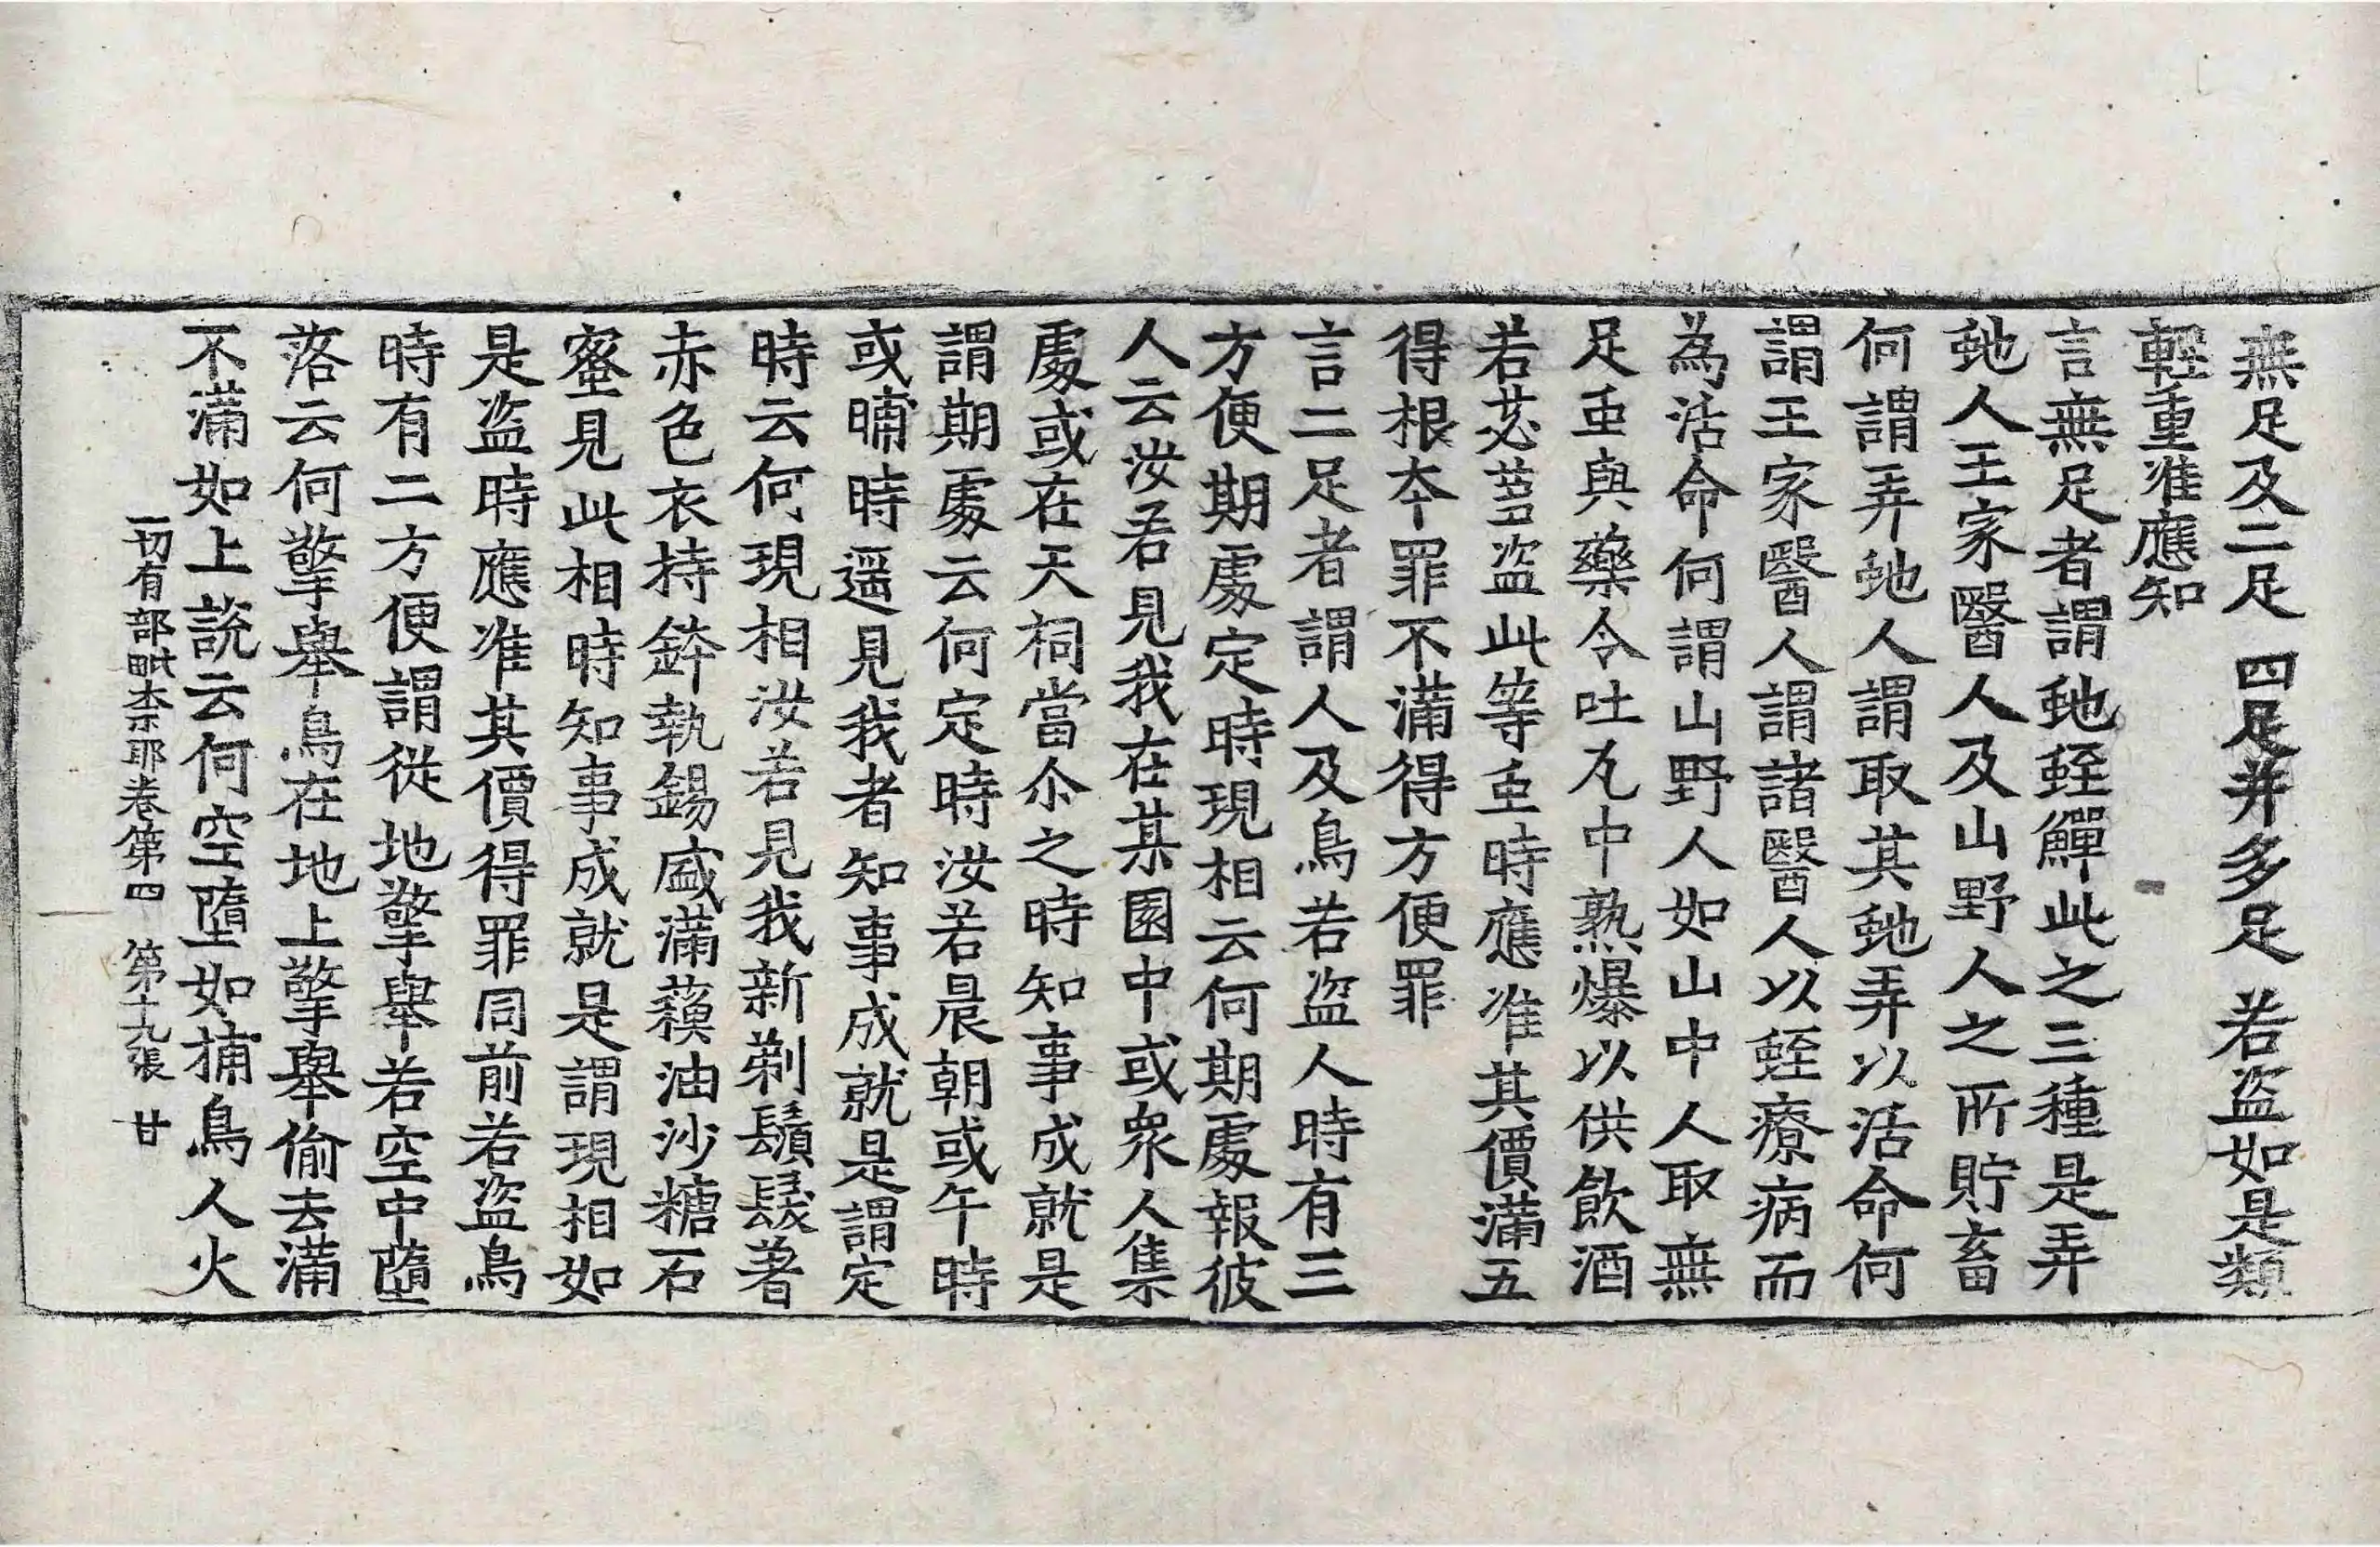 無足及二足 四足并多足 若盜如是類
輕重准應知
言無足者謂虵蛭鱓此之三種是弄
虵人王家醫人及山野人之所貯畜
何謂弄虵人謂取其虵弄以活命何
謂王家醫人謂諸醫人以蛭療病而
為活命何謂山野人如山中人取無
足虫與藥令吐凡中熟爆以供飲酒
若苾蒭盜此等虫時應准其價滿五
得根夲罪不滿得方便罪
言二足者謂人及鳥若盜人時有三
方便期處定時現相云何期處報彼
人云汝若見我在某園中或眾人集
處或在天祠當尒之時知事成就是
謂期處云何定時汝若晨朝或午時
或晡時遥見我者知事成就是謂定
時云何現相汝若見我新剃鬚髮著
赤色衣持鉢執錫盛滿蘓油沙糖石
蜜見此相時知事成就是謂現相如
是盜時應准其價得罪同前若盜鳥
時有二方便謂從地擎舉若空中墮
落云何擎舉鳥在地上擎舉偷去滿
不滿如上說云何空墮如捕鳥人火
一切有部毗柰耶卷第四 第十九張 甘